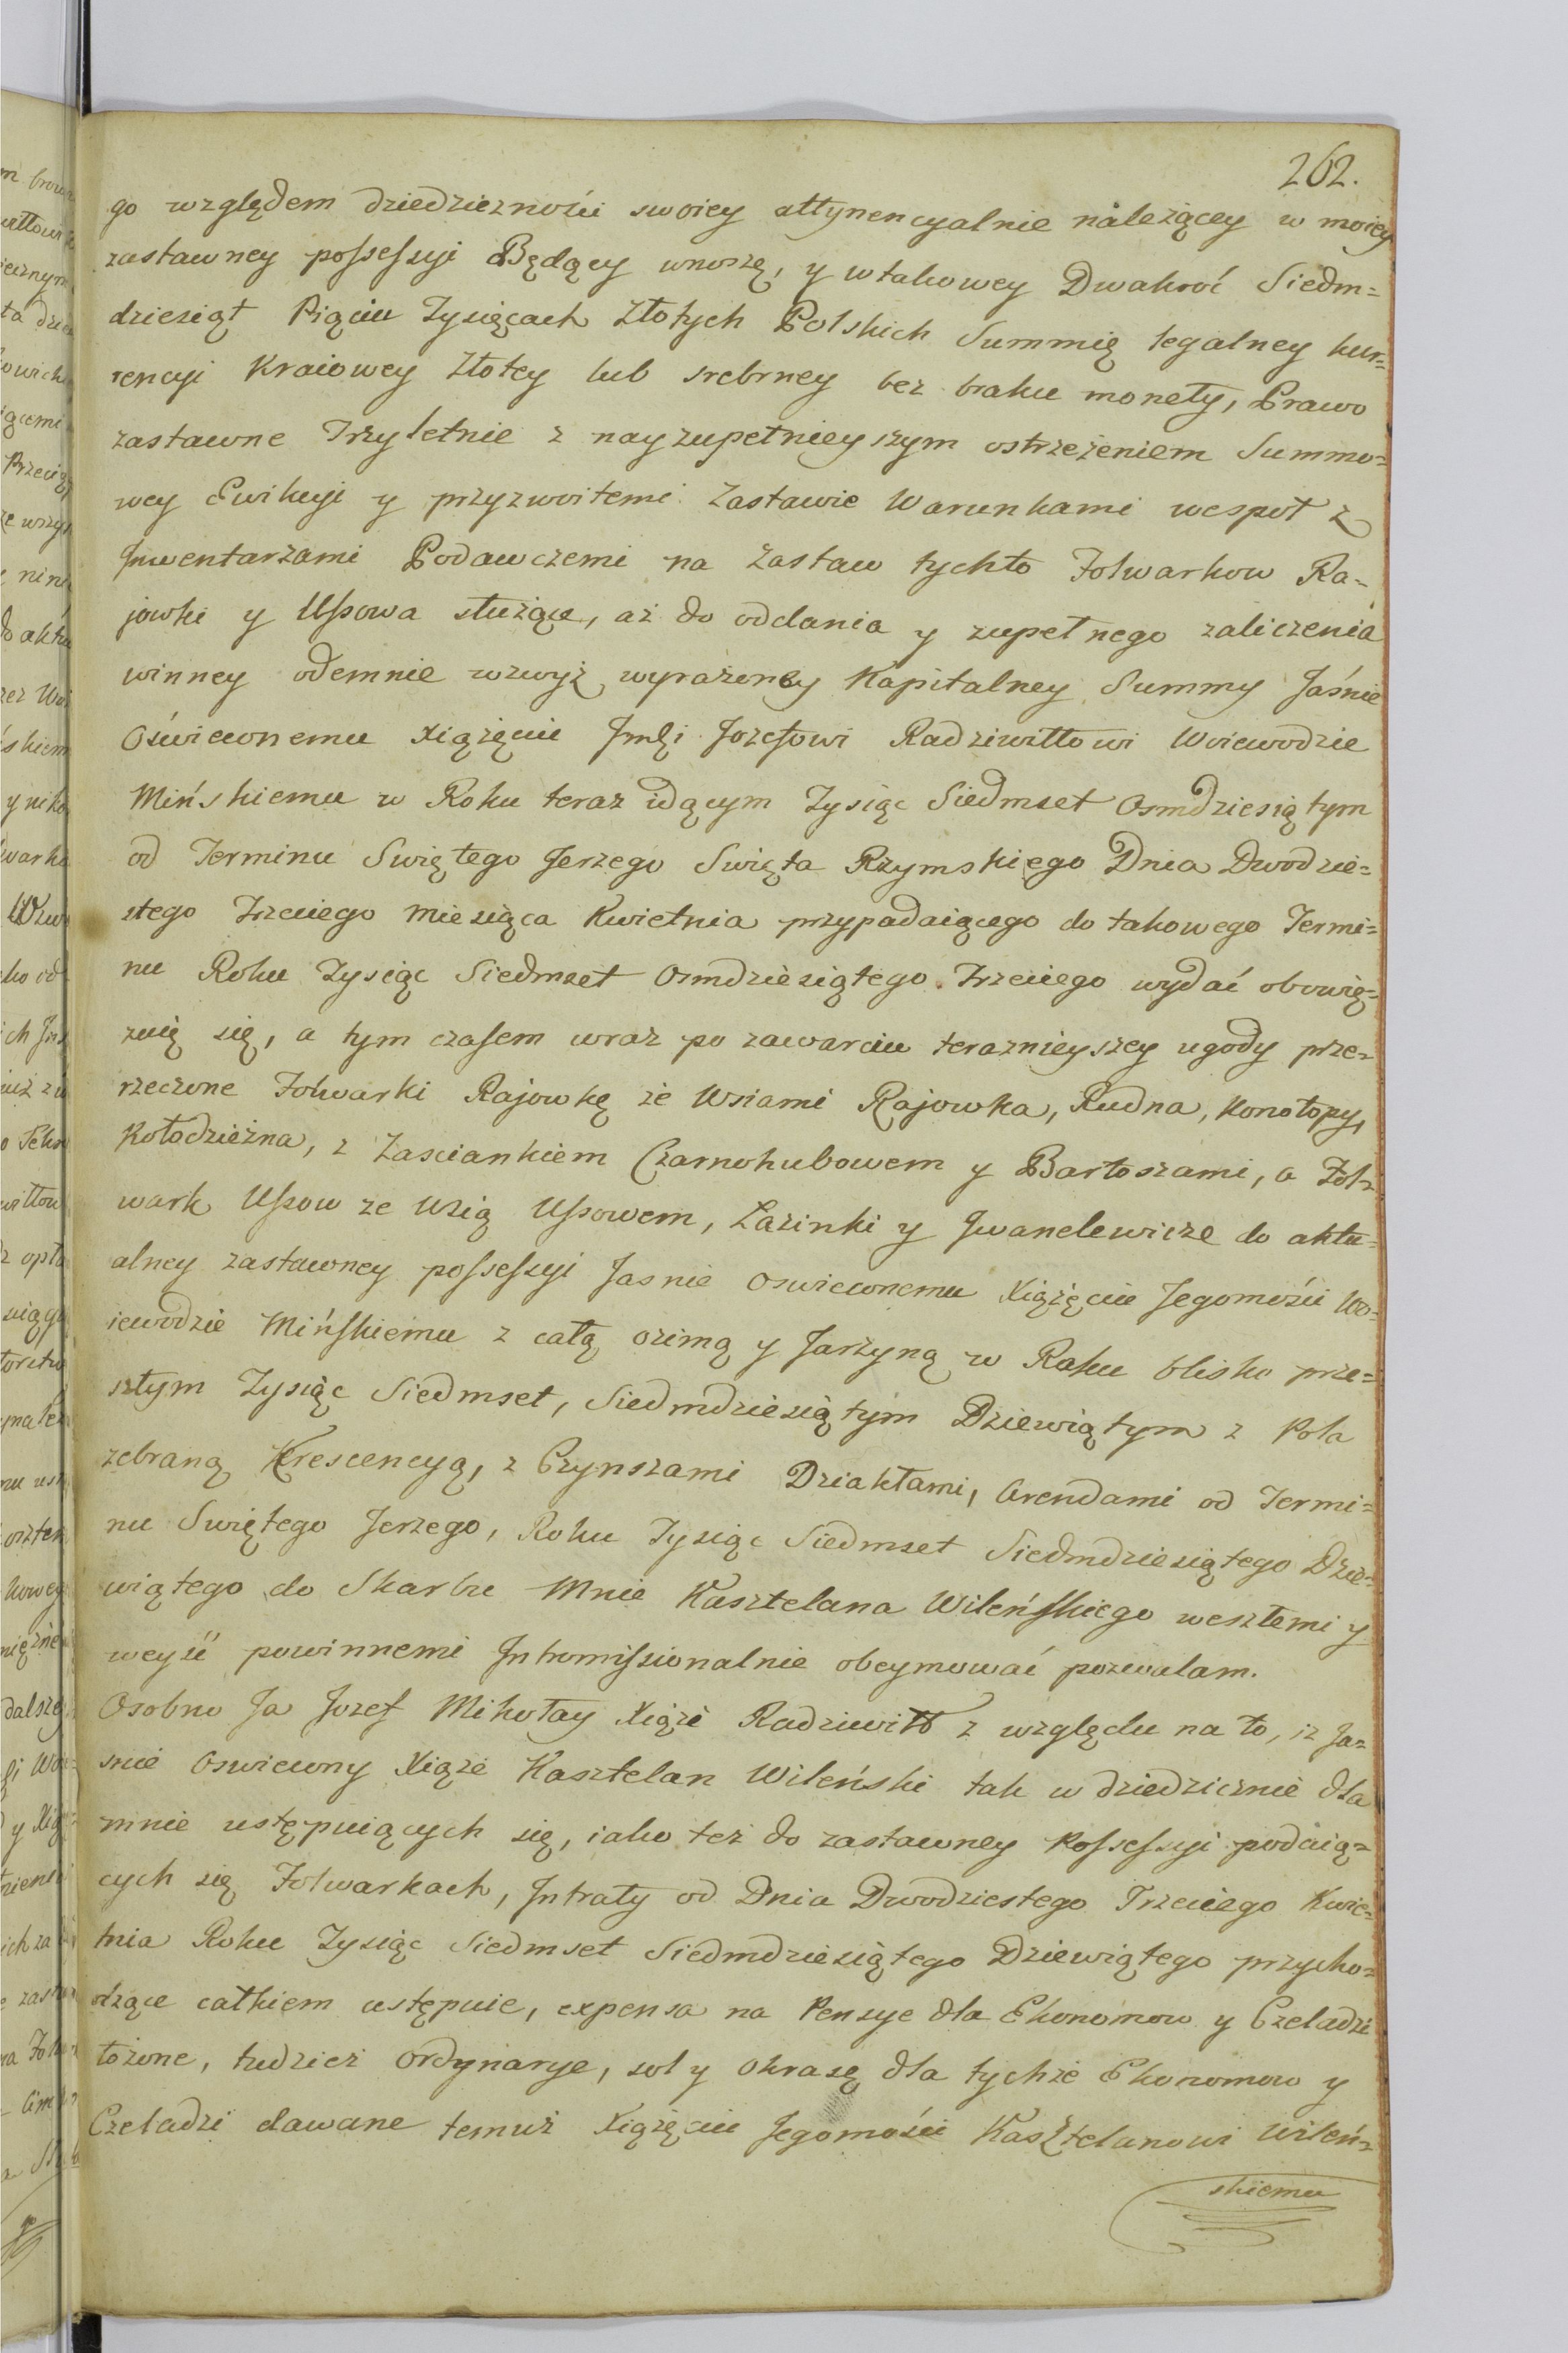 262.
go względem dziedziczności swoiey attynencyalnie należącey w moiey
zastawney possessyi Będącey wnoszę, y w takowey Dwakroć Siedm=
dziesiąt Pięciu Tysięcach Złotych Polskich Summię legalney kur=
rencyi Kraiowey Złotey lub srebrney bez braku monety, Prawo
zastawne Trzyletnie z nayzupełnieyszym ostrzeżeniem Summo=
wey Ewikcyi y przyzwoitemi Zastawie Warunkami wespoł z
Inwentarzami Podawczemi na Zastaw tychto Folwarkow Ra=
jowki y Ussowa służące, aż do oddania y zupełnego zaliczenia
winney odemnie wzwyż wyrażoney Kapitalney Summy Jaśnie
Oświeconemu Xiążęciu Jmći Jozefowi Radziwiłłowi Woiewodzie
Mińskiemu w Roku teraz idącym Tysiąc Siedmset Osmdziesiątym
od Terminu Swiętego Jerzego Swięta Rzymskiego Dnia Dwodzie=
stego Trzeciego Miesiąca Kwietnia przypadaiącego do takowego Termi=
nu Roku Tysiąc Siedmset Osmdziesiątego Trzeciego wydać obowię=
zuię się, a tym czasem wraz po zawarciu teraznieyszey ugody prze=
rzeczone Folwarki Rajowkę ze Wsiami Rajowka, Rudna, Konotopy,
Kołodzieżna, z Zasciankiem Czarnohubowem y Bartoszami, a Fol=
wark Ussow ze Wsią Ussowem, Łazinki y Iwanelewicze do aktu=
alney zastawney possessyi Jasnie Oswieconemu Xiążęciu Jegomości Wo=
iewodzie Mińskiemu z całą oźimą y Jarzyną w Roku blisko prze=
szłym Tysiąc Siedmset, Siedmdziesiątym Dziewiątym z Pola
zebraną Krescencyą, z Czynszami Dziakłami, Arendami od Termi=
nu Swiętego Jerzego, Roku Tysiąc Siedmset Siedmdziesiątego Dzie=
wiątego do Skarbu Mnie Kasztelana Wileńskiego weszłemi y
weyść powinnemi Intromissionalnie obeymować pozwalam.
Osobno Ja Jozef Mikołay Xiąże Radziwiłł z względu na to, iz Ja=
snie Oswiecony Xiąże Kasztelan Wileński tak w dziedzicznie dla
mnie ustępuiących się, iako też do zastawney Possessyi podaią=
cych się Folwarkach, Intraty od Dnia Dwodziestego Trzeciego Kwie=
tnia Roku Tysiąc Siedmset Siedmdziesiątego Dziewiątego przycho=
dzące całkiem ustępuie, expensa na Pensye dla Ekonomow y Czeladzi
łożone, tudzież Ordynarye, sol y Okrasę dla tychże Ekonomow y
Czeladzi dawane temuż Xiążęciu Jegomości Kasztelanowi Wileń=
skiemu